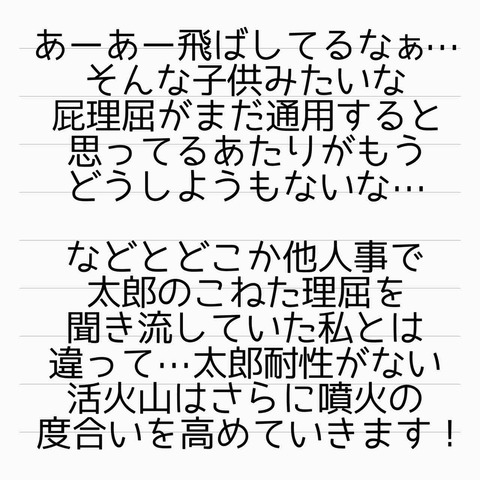 あーあー飛ばしてるなぁ…
そんな子供みたいな
屁理屈がまだ通用すると
思ってるあたりがもう
どうしようもないな…
などとどこか他人事で
太郎のこねた理屈を
聞き流していた私とは
違って…太郎耐性がない
活火山はさらに噴火の
度合いを高めていきます！